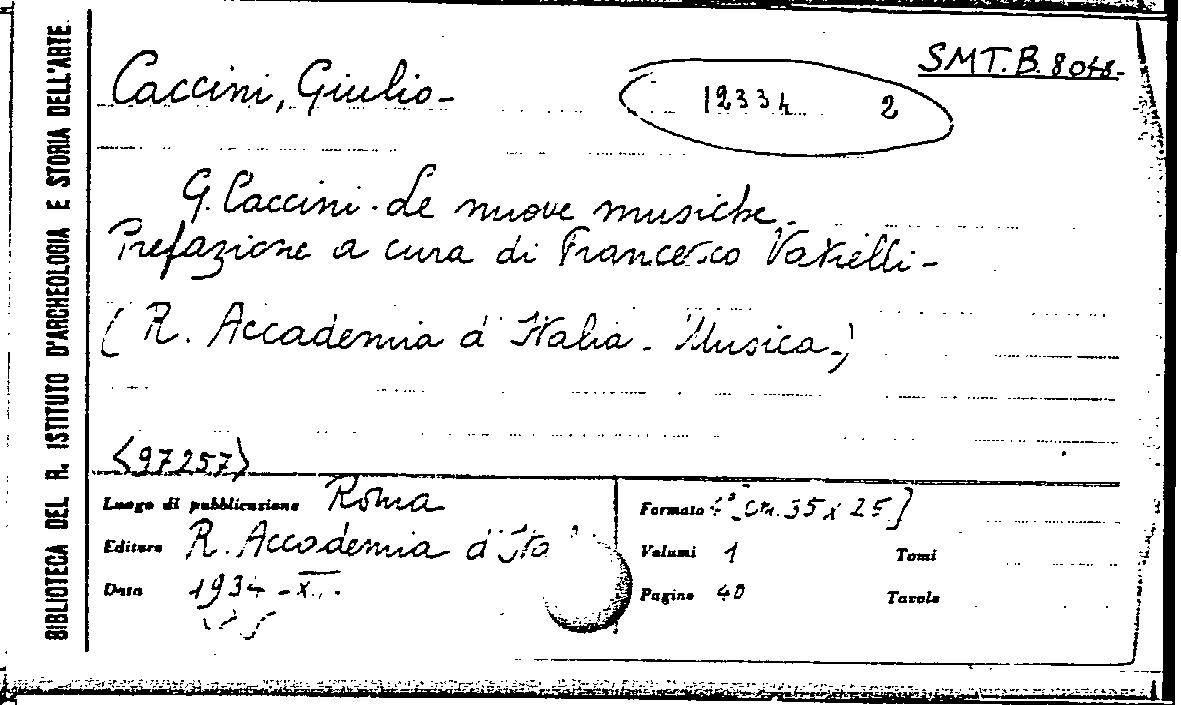 BIBLIOTECA DEL R. ISTITUTO D'ARCHEOLOGIA E STORIA DELL'ARTE
SMT.B.8048-
Caccini, Giulio-
12334 2
G. Caccini. Le nuove musiche.
Prefazione a cura di Francesco Vatielli-
( R. Accademia d'Italia - Musica.)
<97257>
Luogo di pubblicazione Roma
Editore R. Accademia d'Ita
Data 1934-XII.
Formato 4° [cm. 35 x 25]
Volumi 1 Tomi
Pagine 40 Tavole